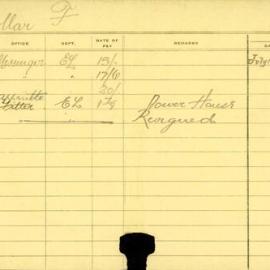 llar F
OFFICE DEPT. DATE OF PAY REMARKS
Messenger EL 15/-
" 17/6
20/-
Fitter EL Power House
Resigned